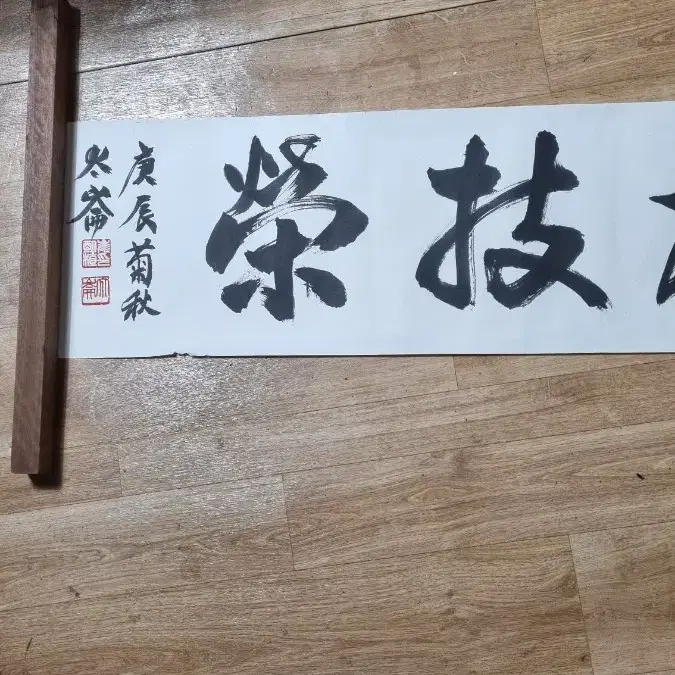 技榮
庚辰菊秋
崙